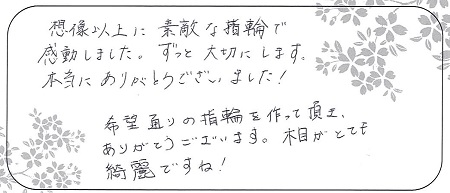 想像以上に 素敵な指輪で
感動しました。ずっと大切にします。
本当にありがとうございました!
希望通りの指輪を作って頂き、
ありがとうございます。木目がとても
綺麗ですね!